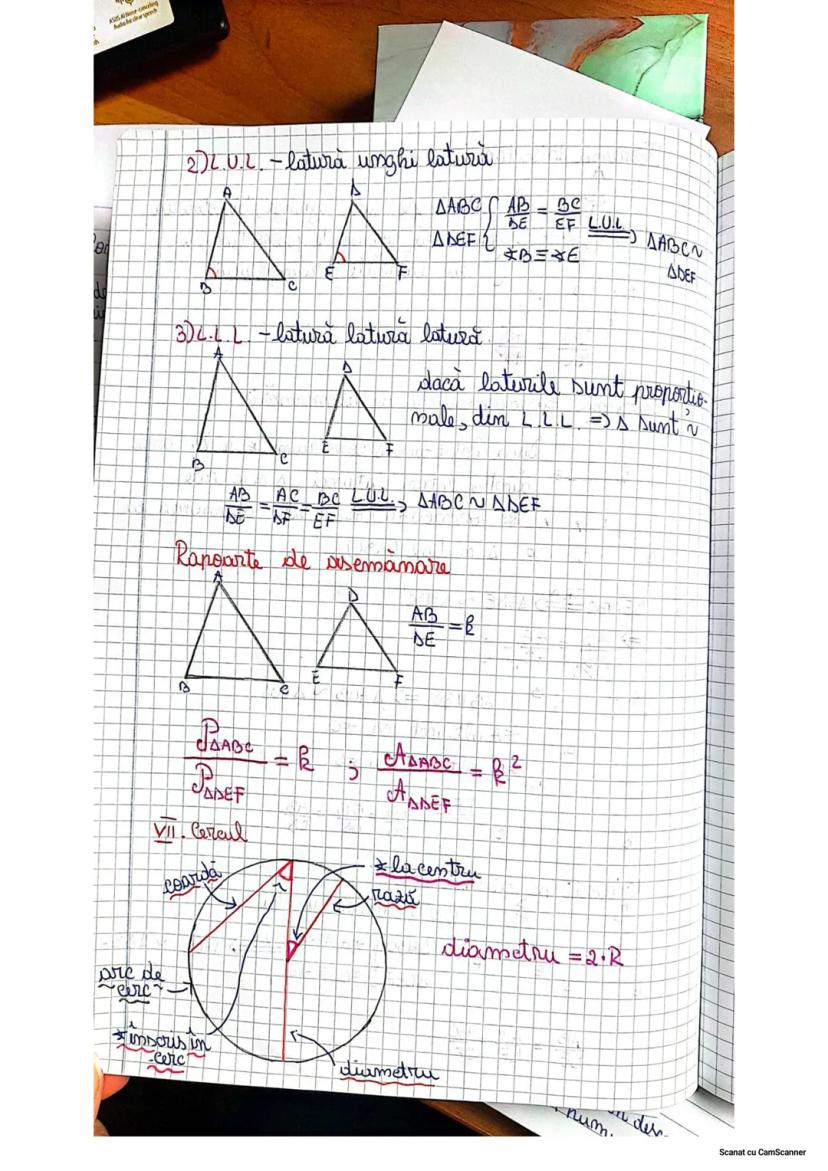 ASUS AI Noise-canceling
Audio for clear speech
2) L.U.L. - latură unghi latură
A
B
C
D
E
F
ΔABC
ΔDEF
{ AB/DE = BC/EF
∢B ≡ ∢E
L.U.L. ⟹ ΔABC ~
ΔDEF
3) L.L.L. - latură latură latură
A
B
C
D
E
F
dacă laturile sunt proporțio-
nale, din L.L.L. => Δ sunt ~
AB/DE = AC/DF = BC/EF L.U.L. ⟹ ΔABC ~ ΔDEF
Rapoarte de asemănare
A
B
C
D
E
F
AB/DE = k
PΔABC/PΔDEF = k ; AΔABC/AΔDEF = k²
VII. Cercul
coardă
∢ la centru
rază
diametru = 2·R
arc de
cerc
∢ înscris în
cerc
diametru
num.
Scanat cu CamScanner